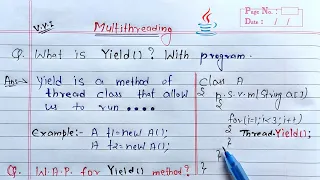 V.V.I
Multithreading
Java
Page No. :
Date : / /
Q. What is Yield()? With program.
Ans→ Yield is a method of
thread class that allow
us to run ....
Example:- A t1=new A();
A t2=new A();
class A
{ p.s.v.m(String a[])
{
for(i=1;i<3;i++)
{ Thread.Yield();
}
}
}
Q. W.A.P. for Yield() method?